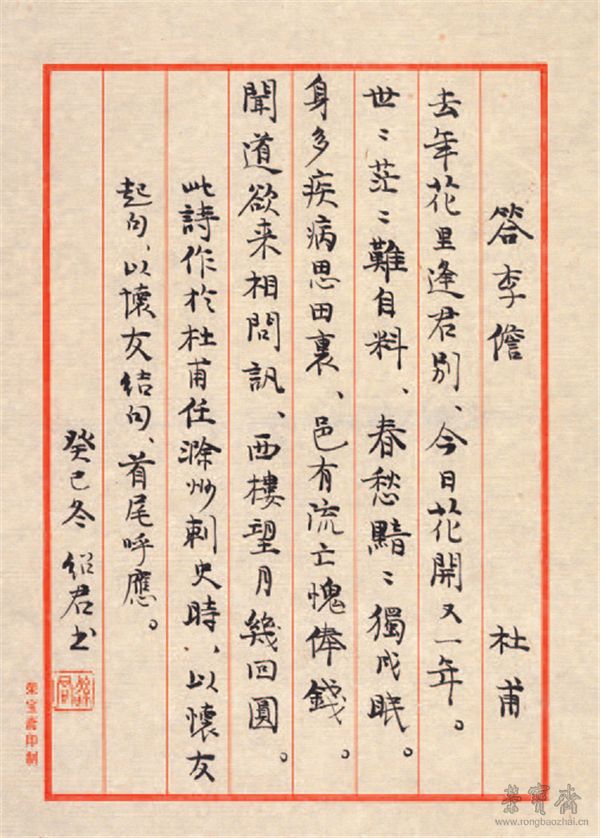 答李儋 杜甫
去年花里逢君别、今日花開又一年。
世〻茫〻難自料、春愁黯〻獨成眠。
身多疾病思田裏、邑有流亡愧俸錢。
聞道欲来相問訊、西樓望月幾回圓。
此詩作於杜甫任滁州刺史時、以懷友
起句、以懷友结句、首尾呼應。
癸巳冬 绍君书
榮宝斋印制
榮寶齋
www.rongbaozhai.cn